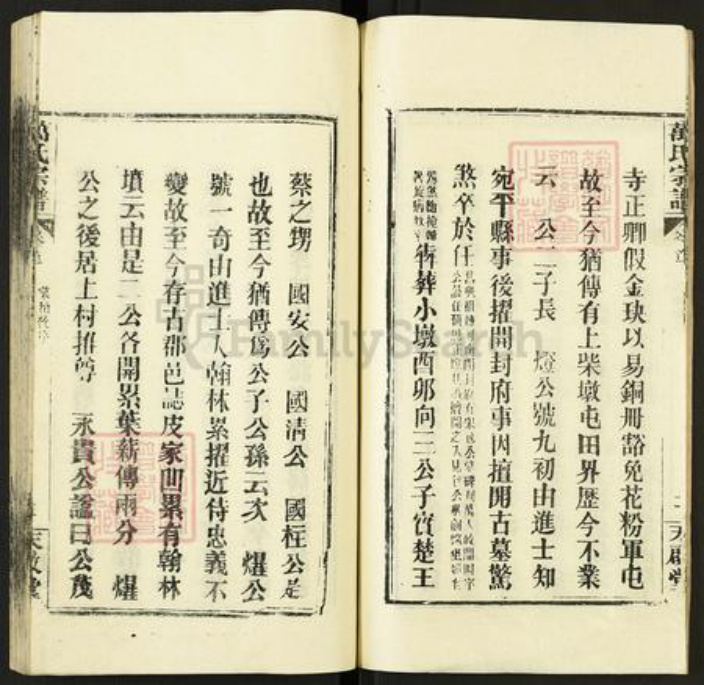 萬氏宗譜
寺正卿假金玦以易銅冊豁免花粉軍屯
故至今猶傳有上柴墩屯田界歷今不業
云 公二子長 燈公號九初由進士知
宛平縣事後擢開封府事因擅開古墓驚
煞卒於任
犇葬小墩酉卯向二公子實楚王
蔡之甥 國安公 國清公 國柱公是
也故至今猶傳爲公子公孫云次 燿公
號一奇由進士入翰林累擢近侍忠義不
變故至今存古郡邑誌皮家凹累有翰林
墳云由是二公各開累葉薪傳兩分 燿
公之後居上村推尊 永貴公諡曰公茂
萬氏宗譜
FamilySearch